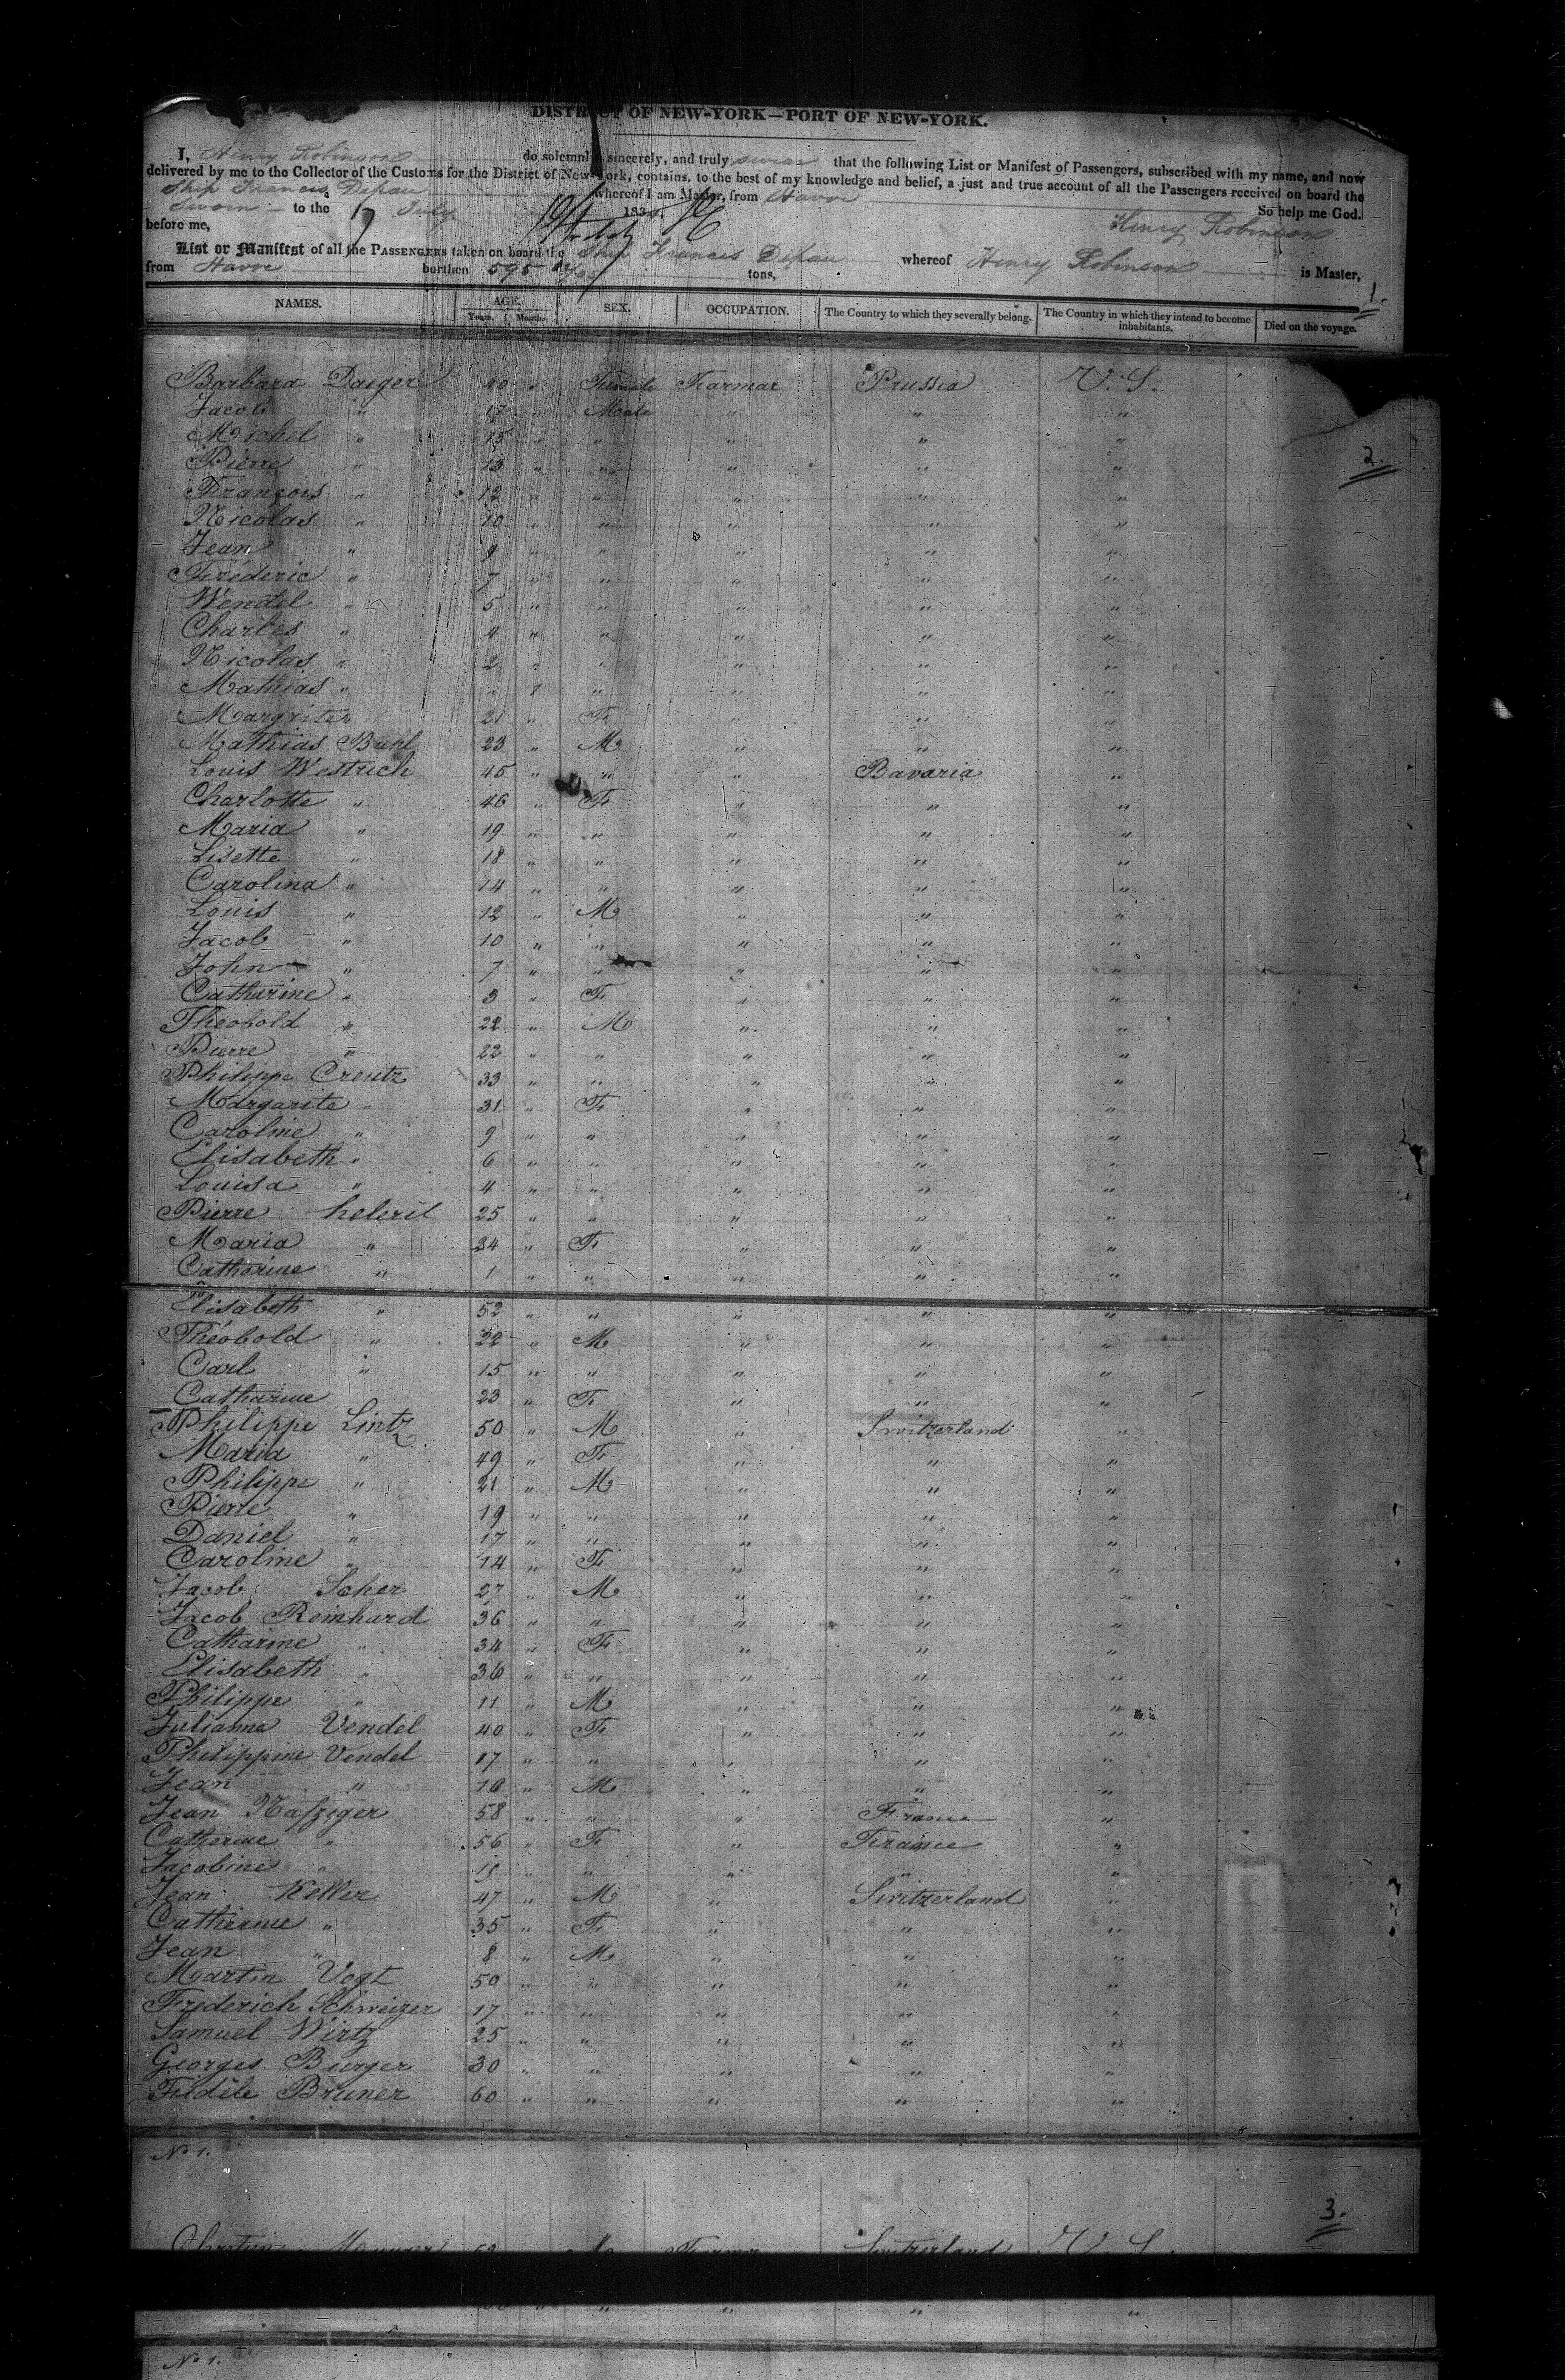 DISTRICT OF NEW-YORK—PORT OF NEW-YORK.
I, Henry Robinson do solemnly, sincerely, and truly swear that the following List or Manifest of Passengers, subscribed with my name, and now
delivered by me to the Collector of the Customs for the District of New-York, contains, to the best of my knowledge and belief, a just and true account of all the Passengers received on board the
Ship Francis Depau whereof I am Master, from Havre
Sworn to the 17 July 183 So help me God.
before me, Henry Robinson
List or Manifest of all the PASSENGERS taken on board the Ship Francis Depau whereof Henry Robinson is Master,
from Havre burthen 595 tons,
1.
NAMES. AGE. SEX. OCCUPATION. The Country to which they severally belong. The Country in which they intend to become inhabitants. Died on the voyage.
Years. Months.
Barbara Daeger 40 " Female Farmer Prussia U. S.
Jacob " 17 " Male " " "
Michel " 15 " " " " "
2.
Pierre " 13 " " " " "
François " 12 " " " " "
Nicolas " 10 " " " " "
Jean " 9 " " " " "
Fréderic " 7 " " " " "
Wendel " 5 " " " " "
Charles " 4 " " " " "
Nicolas " 2 " " " " "
Mathias " " 1 " " " "
Margrite " 21 " F " " "
Mathias Buhl 23 " M " " "
Louis Westrich 45 " " " Bavaria "
Charlotte " 46 " F " " "
Maria " 19 " " " " "
Lisette " 18 " " " " "
Carolina " 14 " " " " "
Louis " 12 " M " " "
Jacob " 10 " " " " "
John " 7 " " " " "
Catharine " 3 " F " " "
Theobold " 22 " M " " "
Pierre " 22 " " " " "
Philippe Creutz 33 " " " " "
Margarite " 31 " F " " "
Caroline " 9 " " " " "
Elisabeth " 6 " " " " "
Louisa " 4 " " " " "
Pierre 25 " " " " "
Maria " 24 " F " " "
Catharine " 1 " " " " "
Elisabeth " 52 " " " " "
Théobold " 22 " M " " "
Carl " 15 " " " " "
Catharine 23 " F " " "
Philippe Lintz 50 " M " Switzerland "
Maria " 49 " F " " "
Philippe " 21 " M " " "
Pierre " 19 " " " " "
Daniel " 17 " " " " "
Caroline " 14 " F " " "
Jacob Scher 27 " M " " "
Jacob Reinhard 36 " " " " "
Catharine " 34 " F " " "
Elisabeth " 36 " " " " "
Philippe " 11 " M " " "
Julianne Vendel 40 " F " " "
Philippine Vendel 17 " " " " "
Jean " 16 " M " " "
Jean Nafziger 58 " " " France "
Catherine " 56 " F " France "
Jacobine " 15 " " " " "
Jean Keller 47 " M " Switzerland "
Catherine " 35 " F " " "
Jean " 8 " M " " "
Martin Vogt 50 " " " " "
Frederich Schweizer 17 " " " " "
Samuel Wirtz 25 " " " " "
Georges Burger 30 " " " " "
Fidèle Bruner 60 " " " " "
No 1.
3.
M Farmer Switzerland U. S.
" " " " "
No 1.